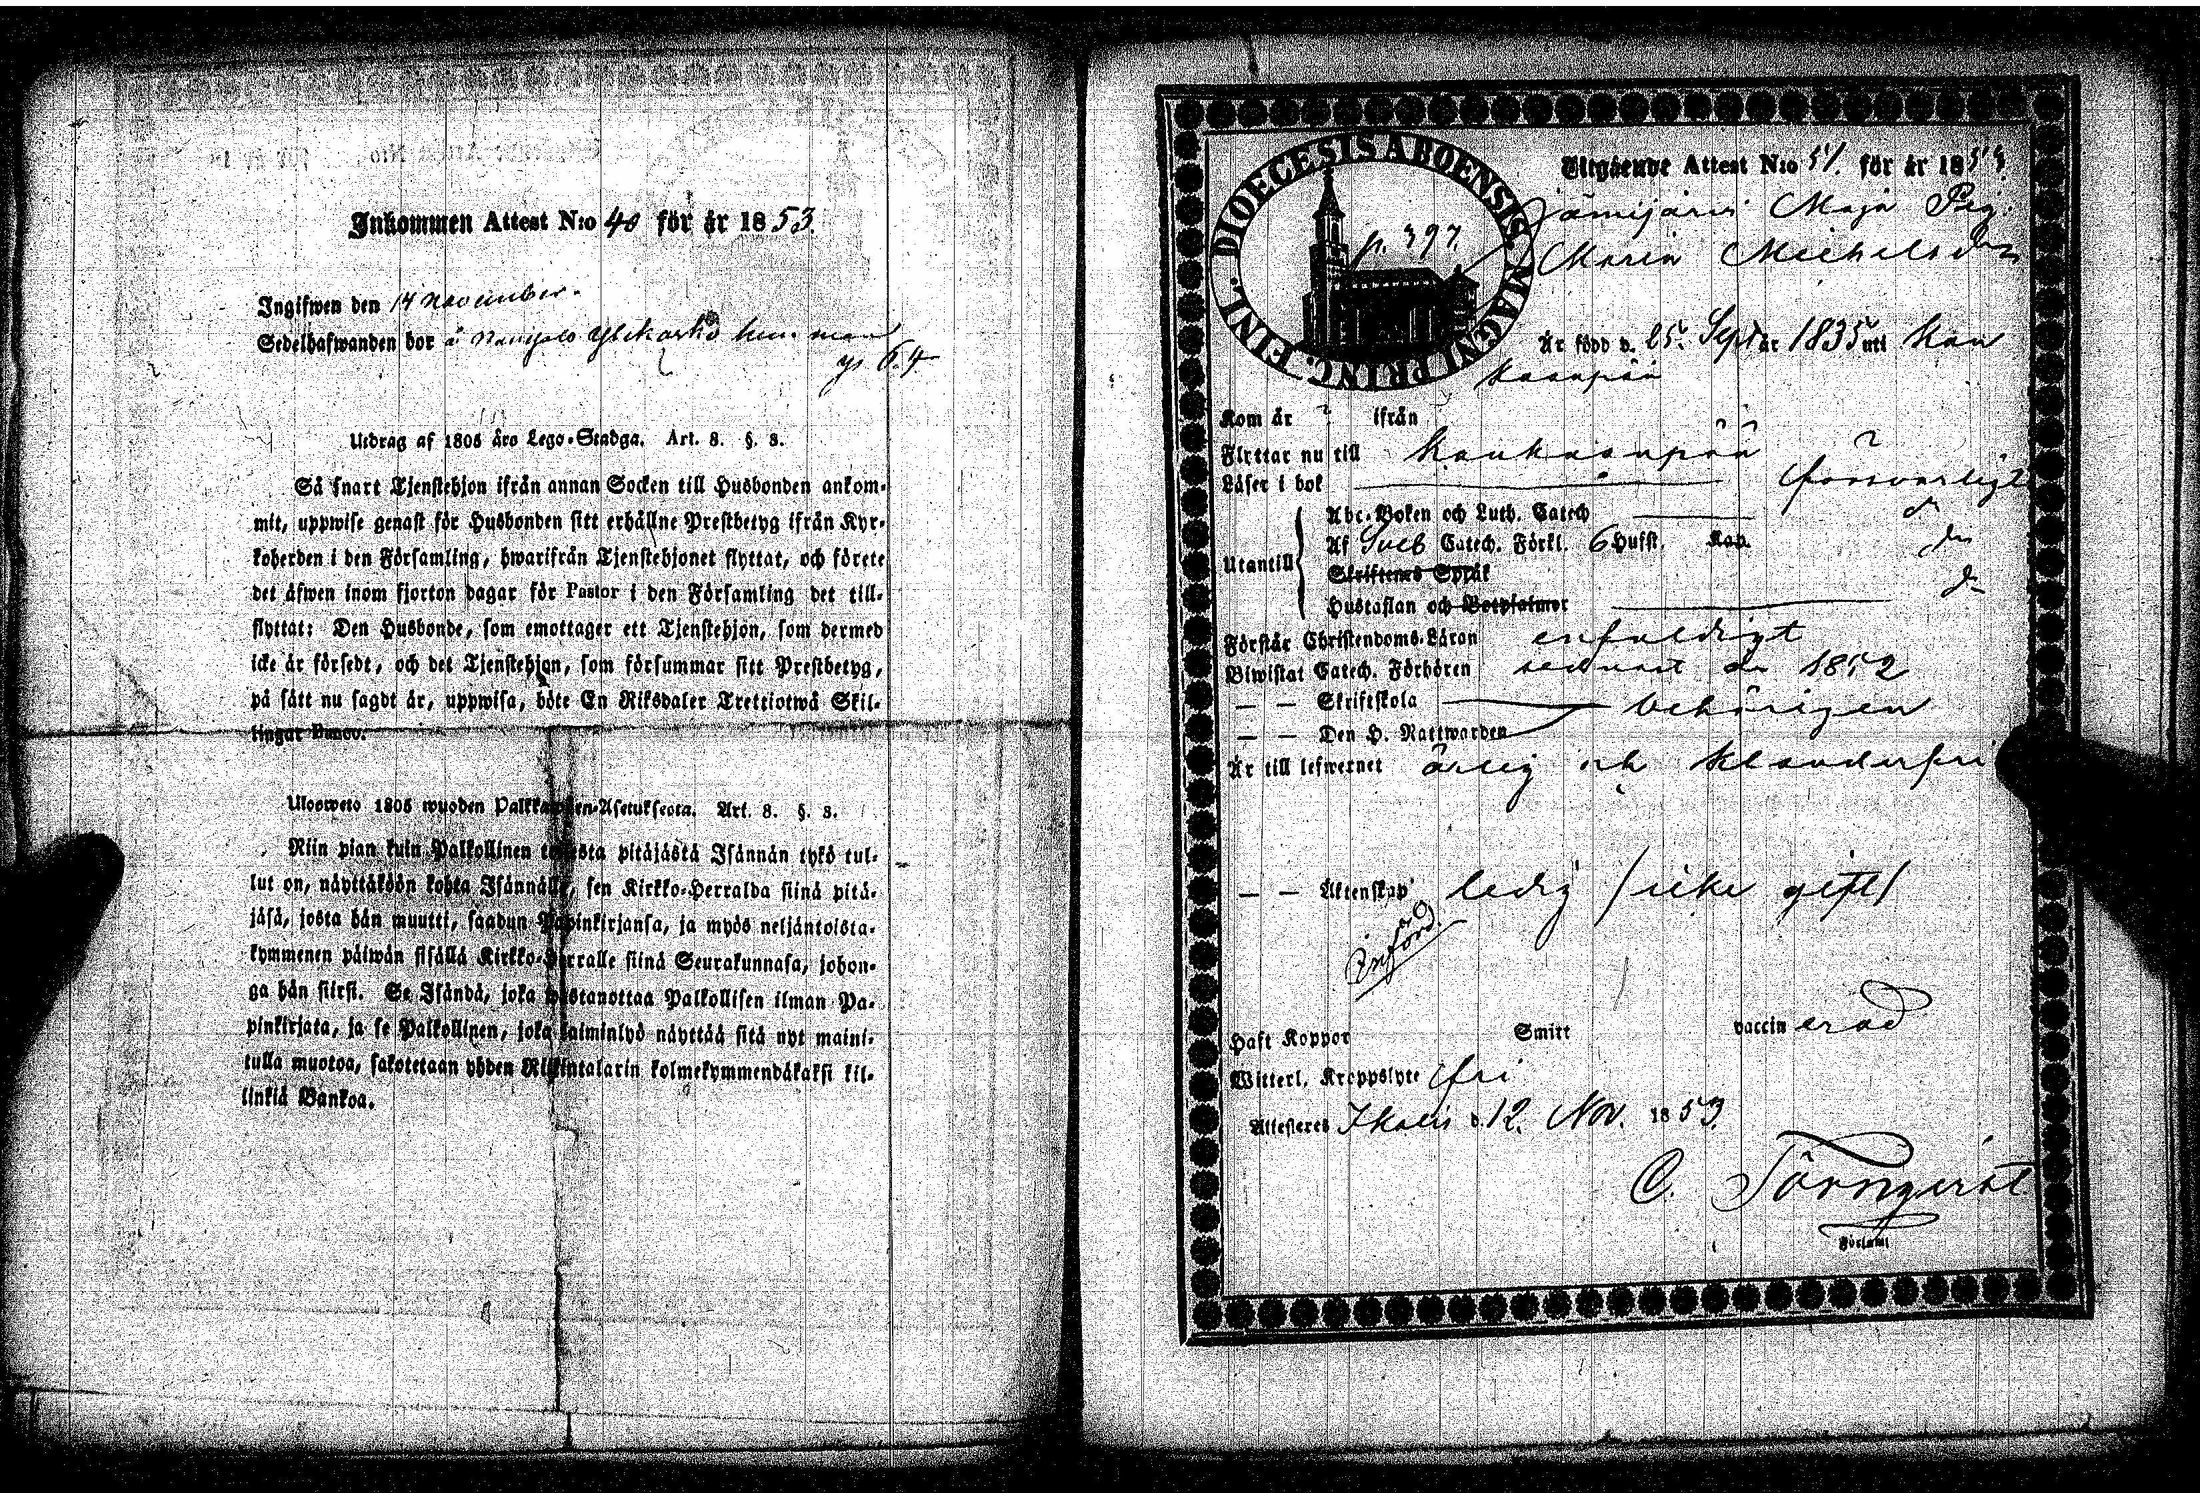 Inkommen Attest N:o 40 för år 1853.
Ingifwen den 14 November.
Sedelhafwanden bor å Ylikarko
64
Utdrag af 1805 åro Lego-Stadga. Art. 8. §. 3.
Så snart Tjenstehjon ifrån annan Socken till Husbonden ankom-
mit, uppwise genast för Husbonden sitt erhållne Prestbetyg ifrån Kyr-
koherden i den Församling, hwarifrån Tjenstehjonet flyttat, och förete
det äfwen inom fjorton dagar för Pastor i den Församling det till-
flyttat: Den Husbonde, som emottager ett Tjenstehjon, som dermed
icke är försedt, och det Tjenstehjon, som försummar sitt Prestbetyg,
på sätt nu sagdt är, uppwisa, böte En Riksdaler Trettiotwå Skil-
lingar Banco.
Ulosweto 1805 wuoden Palkkawäen-Asetuksesta. Art. 8. §. 3.
Niin pian kuin Palkollinen toisesta pitäjästä Isännän tykö tul-
lut on, näyttäköön kohta Isännälle, sen Kirkko-Herralda siinä pitä-
jäsä, josta hän muutti, saadun Papinkirjansa, ja myös neljäntoista-
kymmenen päiwän sisällä Kirkko-Herralle siinä Seurakunnasa, johon-
ga hän siirsi. Se Isändä, joka wastanottaa Palkollisen ilman Pa-
pinkirjata, ja se Palkollinen, joka laiminlyö näyttää sitä nyt maini-
tulla muotoa, sakotetaan yhden Riikintalarin kolmekymmendäkaksi kil-
linkiä Bankoa.
DIOECESIS ABOENSIS MAGNI PRINC. FINL.
p. 397.
Utgående Attest N:o 51. för år 1853.
Jämijärvi Maja Pig.
Maria Michelsdr
Är född d. 25. Sept år 1835 uti Kan
kaanpää
Kom år ? ifrån
Flyttar nu till Kankaanpää
Läser i bok försvarligt
Utantill
Abc-Boken och Luth. Catech do
Af Sveb Catech. Förkl. 6 Hufst. Kap. do
Skriftenes Språk
Hustaflan och Botpsalmer do
Förstår Christendoms-Läran enfaldigt
Biwistat Catech. Förhören sednast år 1852
— — Skriftskola behörigen
— — Den H. Nattwarden
Är till lefwernet ärlig och klanderfri
— — Äktenskap ledig / icke gift /
Införd.
Haft Koppor Smitt vaccinerad
Witterl. Kroppslyte fri
Attesteres Ikalis d. 12. Nov. 1853.
C. Törnqvist